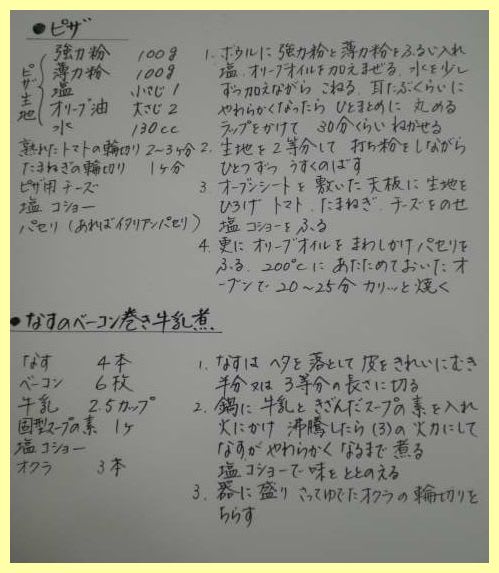 ●ピザ
ピザ生地
強力粉 100g
薄力粉 100g
塩 小さじ1
オリーブ油 大さじ2
水 130cc
熟れたトマトの輪切り 2~3ヶ分
たまねぎの輪切り 1ヶ分
ピザ用チーズ
塩コショー
パセリ(あればイタリアンパセリ)
1. ボウルに強力粉と薄力粉をふるい入れ
塩、オリーブオイルを加えまぜる、水を少し
ずつ加えながらこねる、耳たぶくらいに
やわらかくなったらひとまとめに丸める
ラップをかけて 30分くらいねかせる
2. 生地を2等分して打ち粉をしながら
ひとつずつうすくのばす
3. オーブンシートを敷いた天板に生地を
ひろげ トマト、たまねぎ、チーズをのせ
塩コショーをふる
4. 更にオリーブオイルをまわしかけパセリを
ふる、200℃にあたためておいたオ
ーブンで20~25分カリッと焼く
●なすのベーコン巻き牛乳煮
なす 4本
ベーコン 6枚
牛乳 2.5カップ
固型スープの素 1ヶ
塩コショー
オクラ 3本
1. なすはヘタを落として皮をきれいにむき
半分又は3等分の長さに切る
2. 鍋に牛乳ときざんだスープの素を入れ
火にかけ 沸騰したら(3)の火力にして
なすがやわらかくなるまで煮る
塩コショーで味をととのえる
3. 器に盛り さってゆでたオクラの輪切りを
ちらす